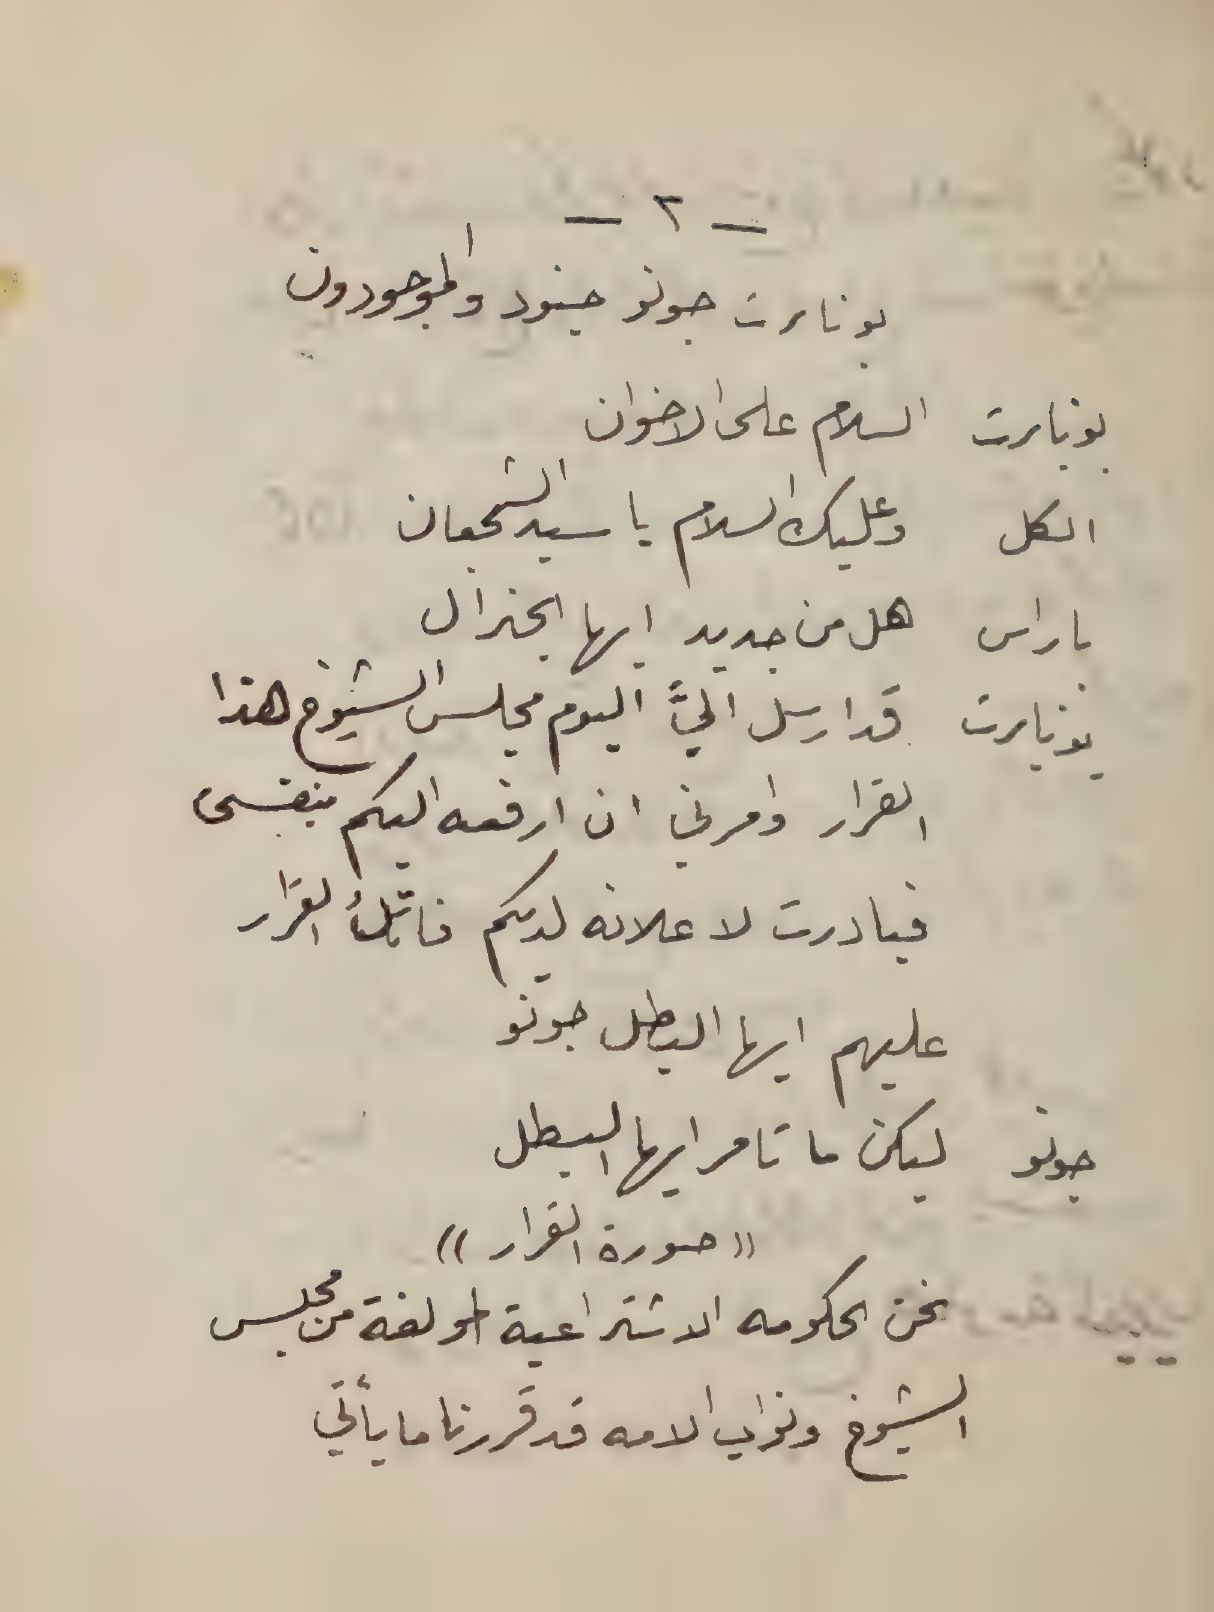 — ٢ —
بونابرت جونو جنود والموجودون
بونابرت السلام على الاخوان
الكل وعليك السلام يا سيد الشجعان
باراس هل من جديد ايها الجنرال
بونابرت قد ارسل اليَّ اليوم مجلس الشيوخ هذا
القرار وامرني ان ارفعه اليكم بنفسى
فبادرت لاعلانه لديكم فاتلُ القرار
عليهم ايها البطل جونو
جونو ليكن ما تامر ايها البطل
« صورة القرار »
نحن الحكومه الاشتراعية المولفة من مجلس
الشيوخ ونواب الامه قد قررنا ما يأتي